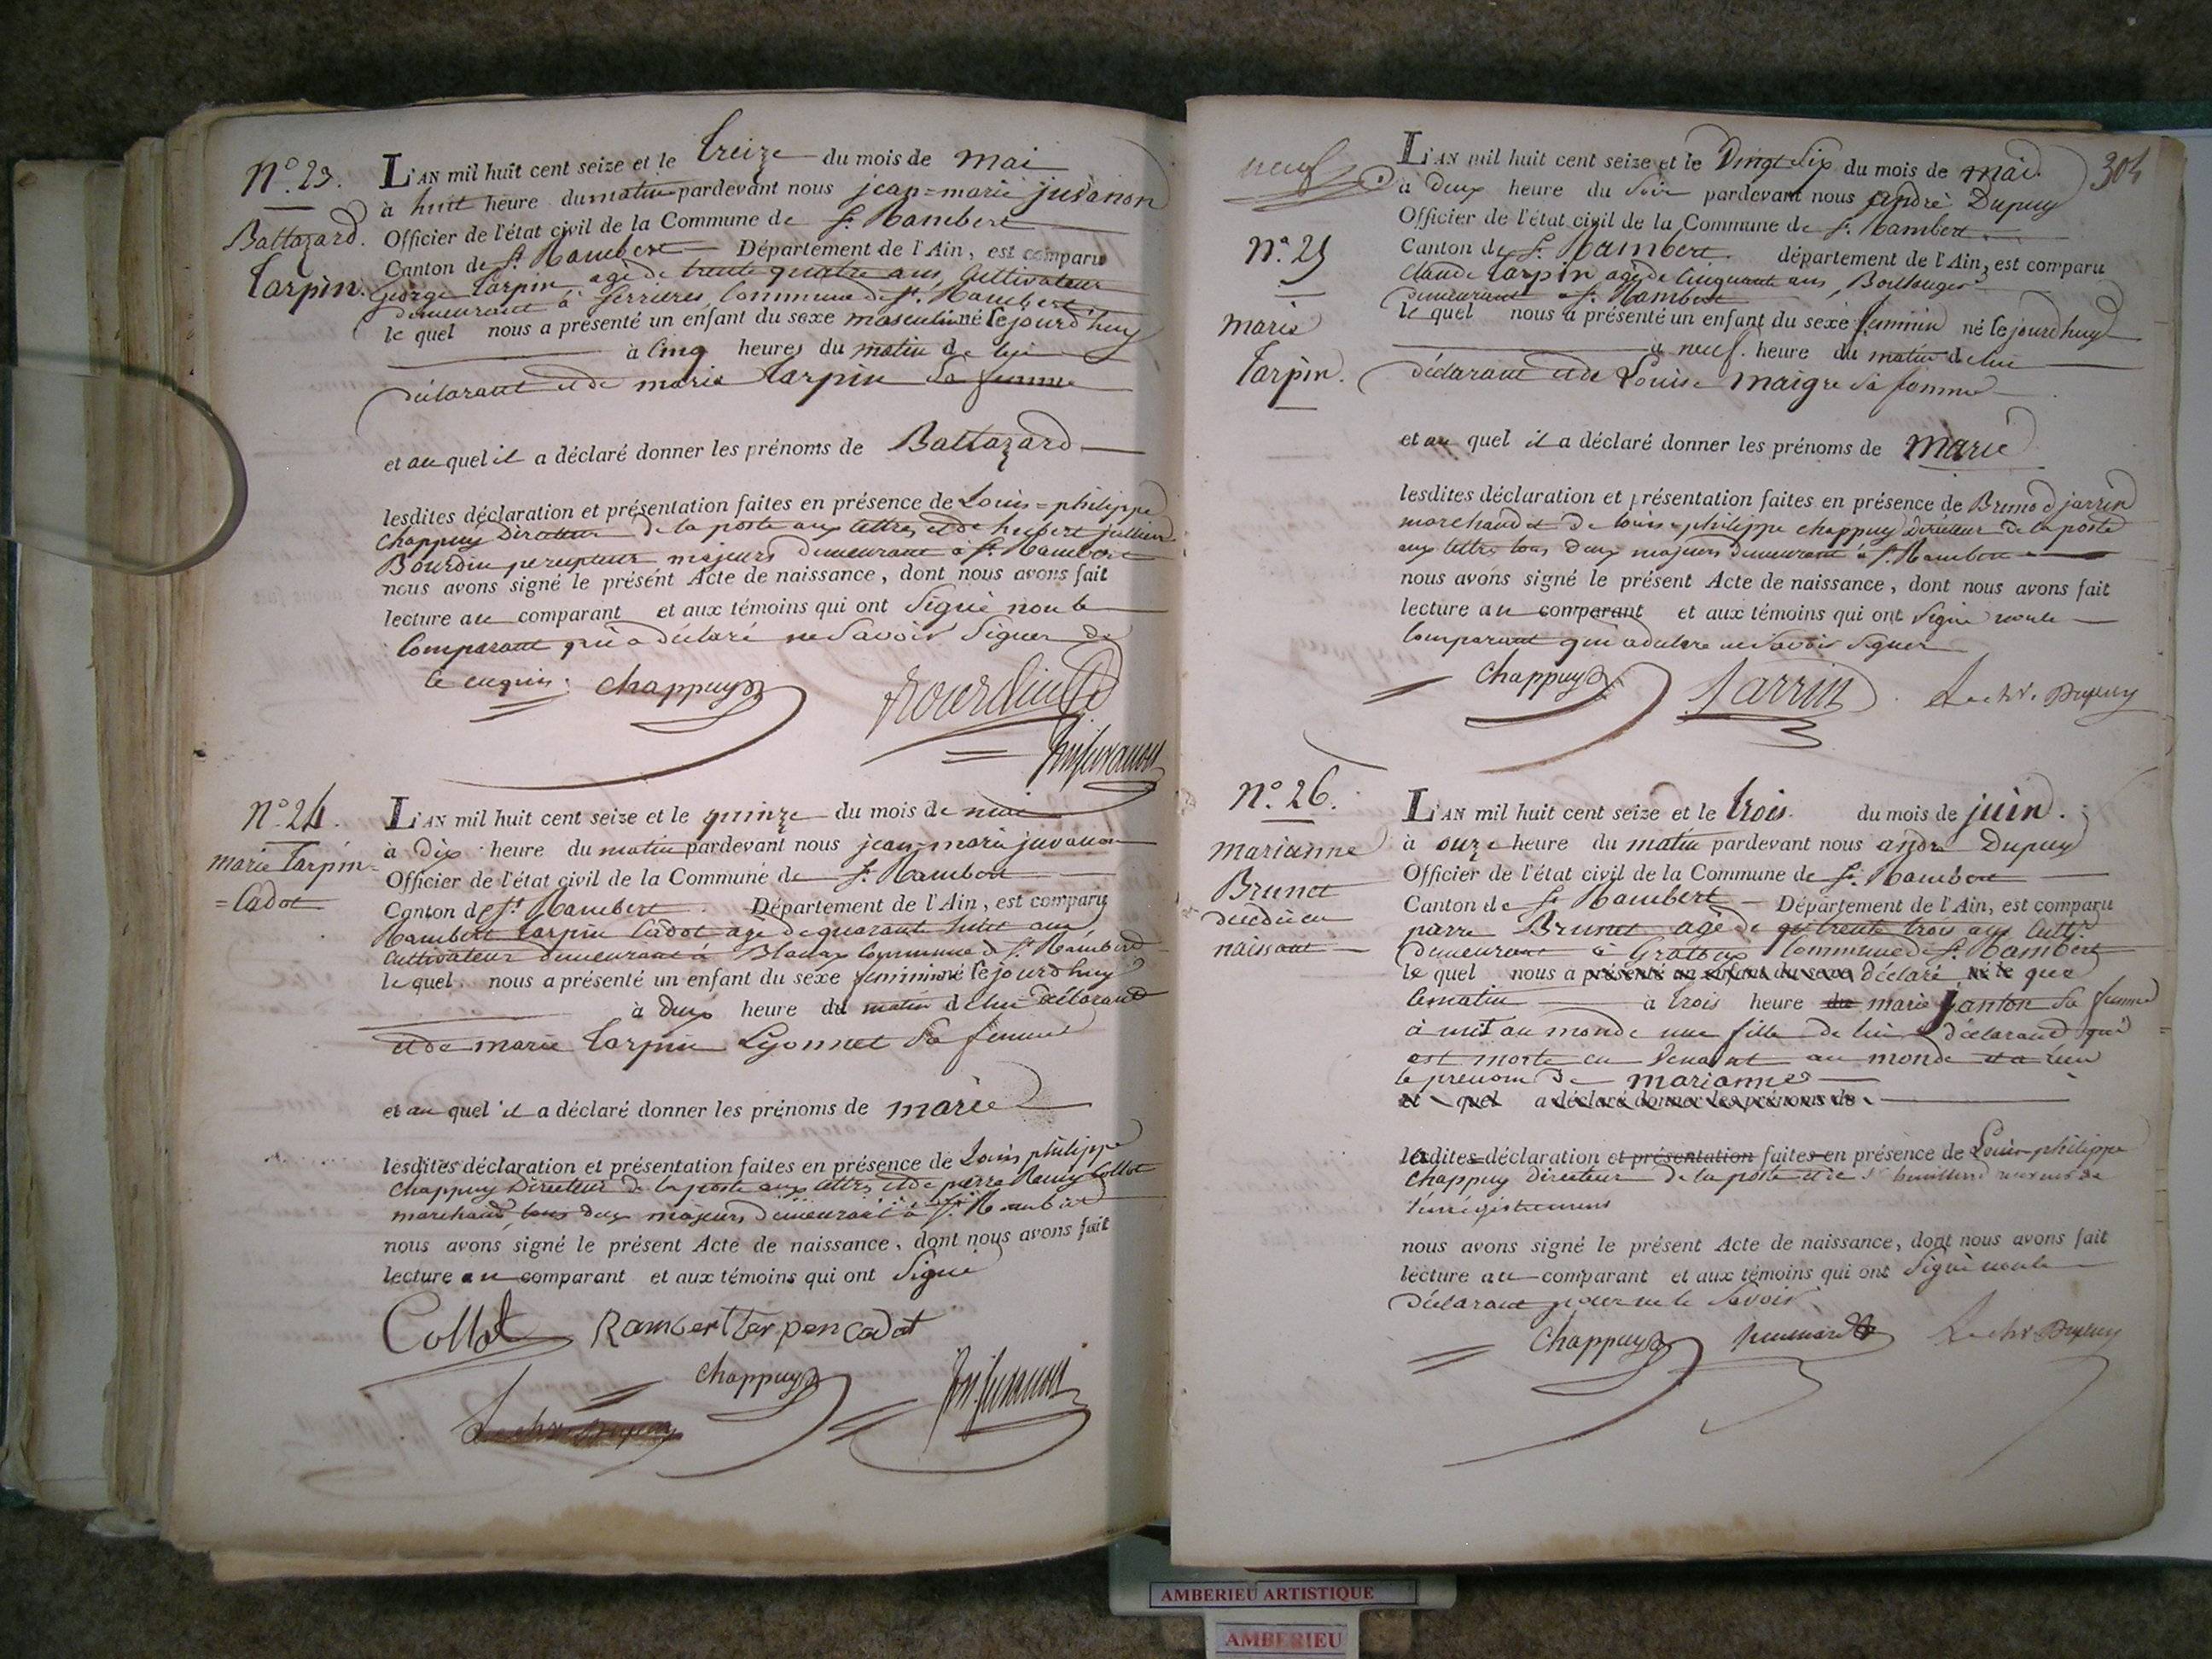 N.° 23.
Baltazard.
Tarpin.
L'AN mil huit cent seize et le treize du mois de mai
à huit heure du matin pardevant nous jean=marie juvanon
Officier de l'état civil de la Commune de St. Rambert
Canton de St Rambert Département de l'Ain, est comparu
George Tarpin agé de trente quatre ans, Cultivateur
demeurant à Serrieres, Commune de St. Rambert
le quel nous a présenté un enfant du sexe masculin né le jourd'huy
à Cinq heures du matin de lui
déclarant et de marie Tarpin Sa femme
et au quel il a déclaré donner les prénoms de Baltazard
lesdites déclaration et présentation faites en présence de Louis=philippe
Chappuy Directeur de la poste aux lettres et de hubert jullien
Bourdin percepteur majeurs demeurant à St. Rambert
nous avons signé le présent Acte de naissance, dont nous avons fait
lecture au comparant et aux témoins qui ont Signé non le
Comparant qui a déclaré ne Savoir Signer de
ce enquis. Chappuy Bourdin
jm juvanon
N.° 24.
marie Tarpin
=Cadot
L'AN mil huit cent seize et le quinze du mois de mai
à Dix heure du matin pardevant nous jean-marie juvanon
Officier de l'état civil de la Commune de St. Rambert
Canton de St Rambert. Département de l'Ain, est comparu
Rambert Tarpin Cadot agé de quarante huit ans
Cultivateur demeurant à Blanaz Commune de St. Rambert
le quel nous a présenté un enfant du sexe feminin né le jourd'huy
à deux heure du matin de lui déclarant
et de marie Tarpin Lyonnet Sa femme
et au quel il a déclaré donner les prénoms de marie
lesdites déclaration et présentation faites en présence de Louis philippe
Chappuy Directeur de la poste aux lettres et de pierre Remy Collot
marchand, tous deux majeurs demeurant à St. Rambert
nous avons signé le présent Acte de naissance, dont nous avons fait
lecture au comparant et aux témoins qui ont Signé
Collot Rambert tarpen cadot
Chappuy jm. juvanon
Le chr. Dupuy
neuf
304
N.° 25
marie
Tarpin.
L'AN mil huit cent seize et le Vingt Six du mois de mai
à Deux heure du Soir pardevant nous andré Dupuy
Officier de l'état civil de la Commune de St. Rambert
Canton de St. Rambert. département de l'Ain, est comparu
Claude Tarpin agé de Cinquante ans, Boulanger
demeurant à St. Rambert
le quel nous a présenté un enfant du sexe feminin né le jourdhuy
à neuf. heure du matin de lui
déclarant et de Louise maigre Sa femme
et au quel il a déclaré donner les prénoms de marie
lesdites déclaration et présentation faites en présence de Bruno jarrin
marchand et de louis=philippe chappuy directeur de la poste
aux lettres tous deux majeurs demeurant à St. Rambert
nous avons signé le présent Acte de naissance, dont nous avons fait
lecture au comparant et aux témoins qui ont Signé non le
Comparant qui a déclaré ne Savoir Signer
Chappuy Jarrin Le chr. Dupuy
N.° 26.
marianne
Brunet
décédée en
naissant
L'AN mil huit cent seize et le trois du mois de juin.
à onze heure du matin pardevant nous andre Dupuy
Officier de l'état civil de la Commune de St. Rambert
Canton de St Rambert Département de l'Ain, est comparu
pierre Brunet agé de trente trois ans Cultr
demeurant à Grattoux Commune de St. Rambert
le quel nous a présenté un enfant du sexe déclaré né le que
le matin à trois heure du marie Janton Sa femme
à mit au monde une fille de lui déclarant qui
est morte en Venant au monde et a Reçu
le prenom de marianne
et quel a déclaré donner les prénoms de
lesdites déclaration et présentation faites en présence de Louis philippe
Chappuy directeur de la poste et de
l'enrégistrement
nous avons signé le présent Acte de naissance, dont nous avons fait
lecture au comparant et aux témoins qui ont Signé non le
déclarant pour ne le Savoir.
Chappuy Le chr Dupuy
AMBERIEU ARTISTIQUE
AMBERIEU